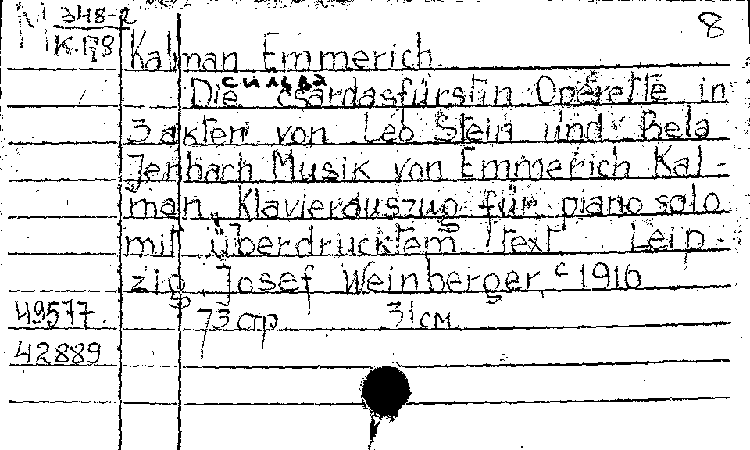 М 348-2 8
К-178 Kalman Emmerich
сильва
Die csárdásfürstin Operette in
3 akten von Leo Stein und Bela
Jenbach Musik von Emmerich Kal-
man, Klavierauszug für piano solo
mit überdrucktem Text Leip-
zig Josef Weinberger, c 1916
49577. 73 стр 31 см
42889